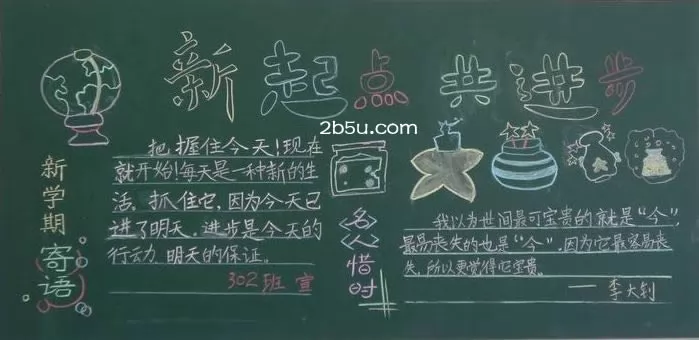 新起点 共进步
2b5u.com
新学期
寄语
把握住今天!现在
就开始!每天是一种新的生
活. 抓住它,因为今天已
进了明天. 进步是今天的
行动. 明天的保证.
302班 宣
名人惜时
我以为世间最可宝贵的就是“今”,
最易丧失的也是“今”.因为它最容易丧
失,所以更觉得它宝贵.
——李大钊